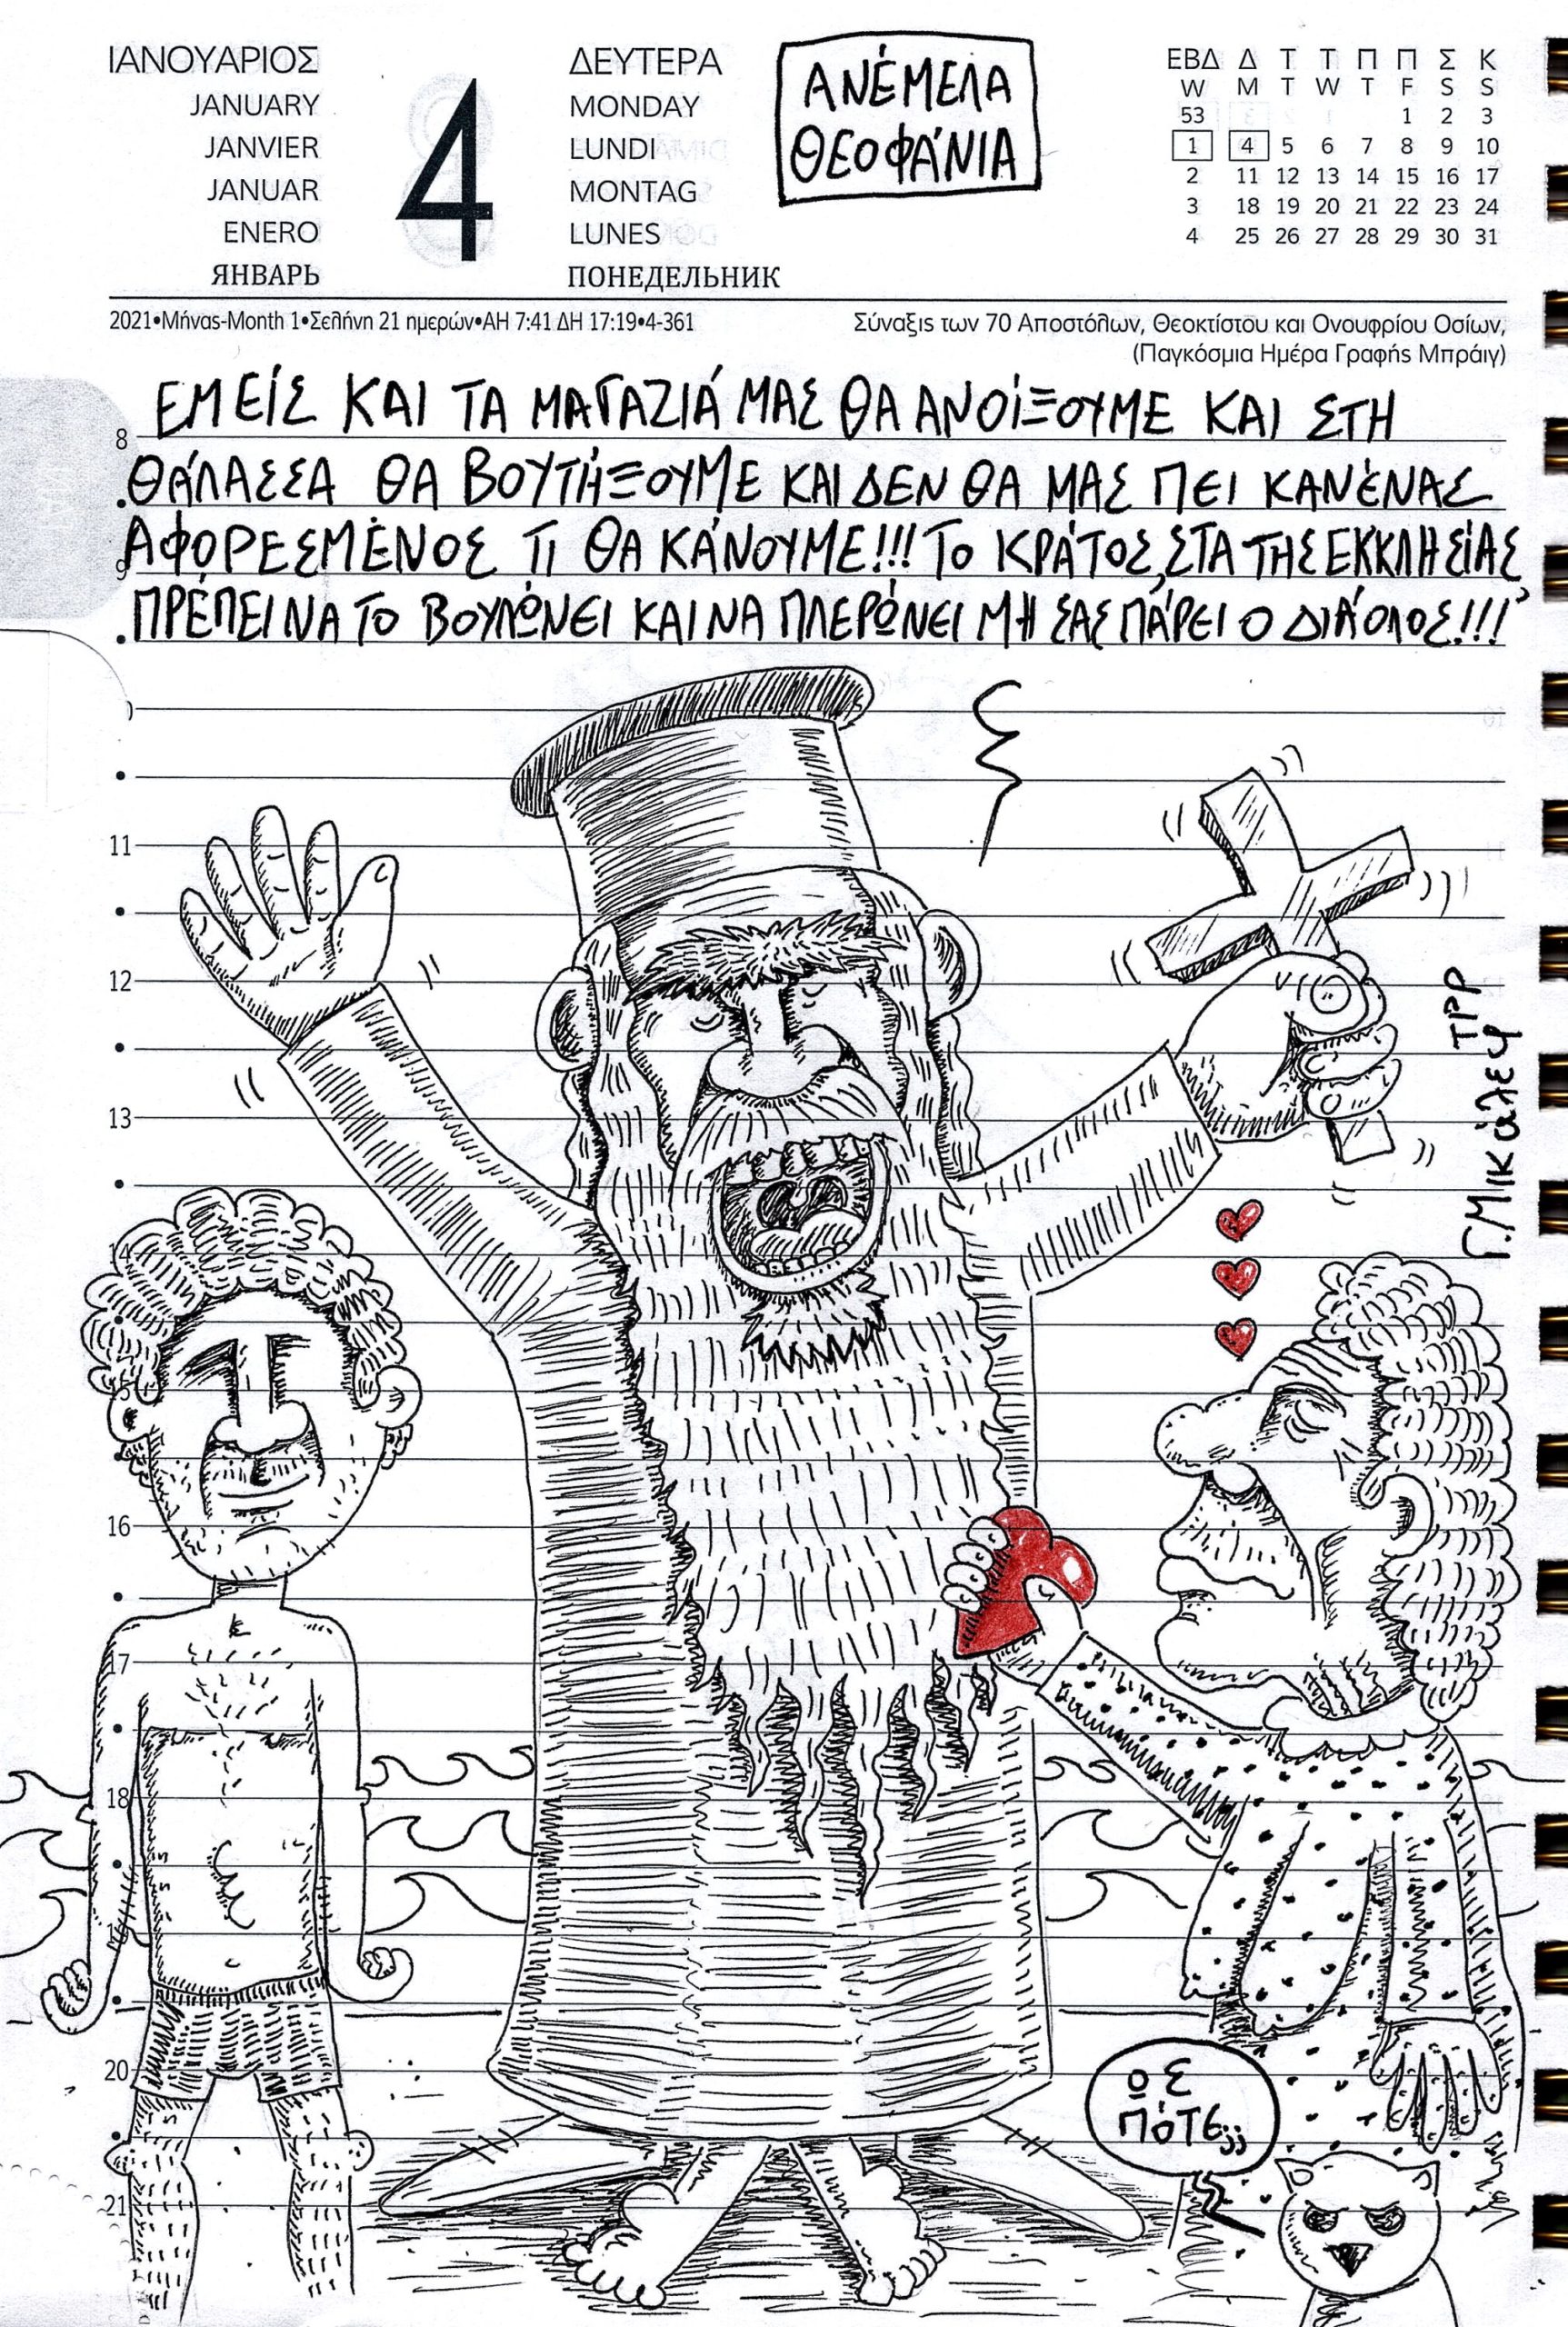 ΙΑΝΟΥΑΡΙΟΣ
JANUARY
JANVIER
JANUAR
ENERO
ЯНВАРЬ
4
ΔΕΥΤΕΡΑ
MONDAY
LUNDI
MONTAG
LUNES
ПОНЕДЕЛЬНИК
ΑΝΈΜΕΛΑ
ΘΕΟΦΆΝΙΑ
ΕΒΔ Δ Τ Τ Π Π Σ Κ
W M T W T F S S
53 1 2 3
1 4 5 6 7 8 9 10
2 11 12 13 14 15 16 17
3 18 19 20 21 22 23 24
4 25 26 27 28 29 30 31
2021•Μήνας-Month 1•Σελήνη 21 ημερών•ΑΗ 7:41 ΔΗ 17:19•4-361
Σύναξις των 70 Αποστόλων, Θεοκτίστου και Ονουφρίου Οσίων,
(Παγκόσμια Ημέρα Γραφής Μπράιγ)
ΕΜΕΊΣ ΚΑΙ ΤΑ ΜΑΓΑΖΙΆ ΜΑΣ ΘΑ ΑΝΟΊΞΟΥΜΕ ΚΑΙ ΣΤΗ
8
ΘΆΛΑΣΣΑ ΘΑ ΒΟΥΤΉΞΟΥΜΕ ΚΑΙ ΔΕΝ ΘΑ ΜΑΣ ΠΕΙ ΚΑΝΈΝΑΣ
ΑΦΟΡΕΣΜΈΝΟΣ ΤΙ ΘΑ ΚΆΝΟΥΜΕ!!! ΤΟ ΚΡΆΤΟΣ, ΣΤΑ ΤΗΣ ΕΚΚΛΗΣΊΑΣ,
9
ΠΡΈΠΕΙ ΝΑ ΤΟ ΒΟΥΛΏΝΕΙ ΚΑΙ ΝΑ ΠΛΕΡΏΝΕΙ ΜΗ ΣΑΣ ΠΆΡΕΙ Ο ΔΙΆΟΛΟΣ!!!
11
12
13
Γ.Μικάλεψ
ΤΡΡ
14
15
16
17
18
19
20
ΩΣ
ΠΌΤΕ;;
21